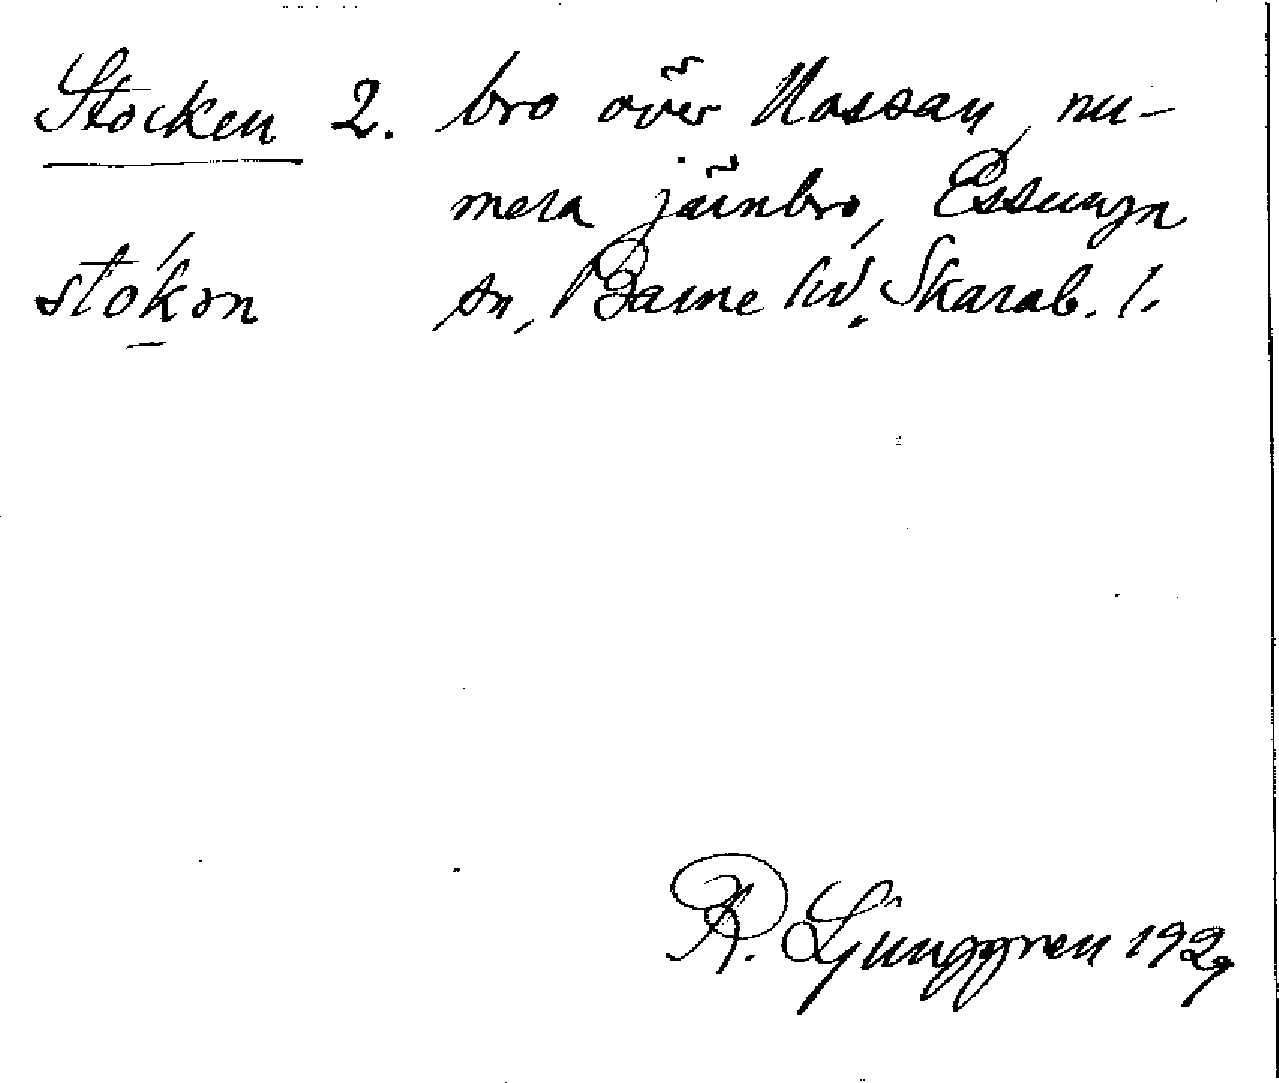 Stocken 2. bro över Nossan, nu-
mera järnbro, Essunga
stókon sn, Barne hd. Skarab. l.
R. Ljunggren 1929